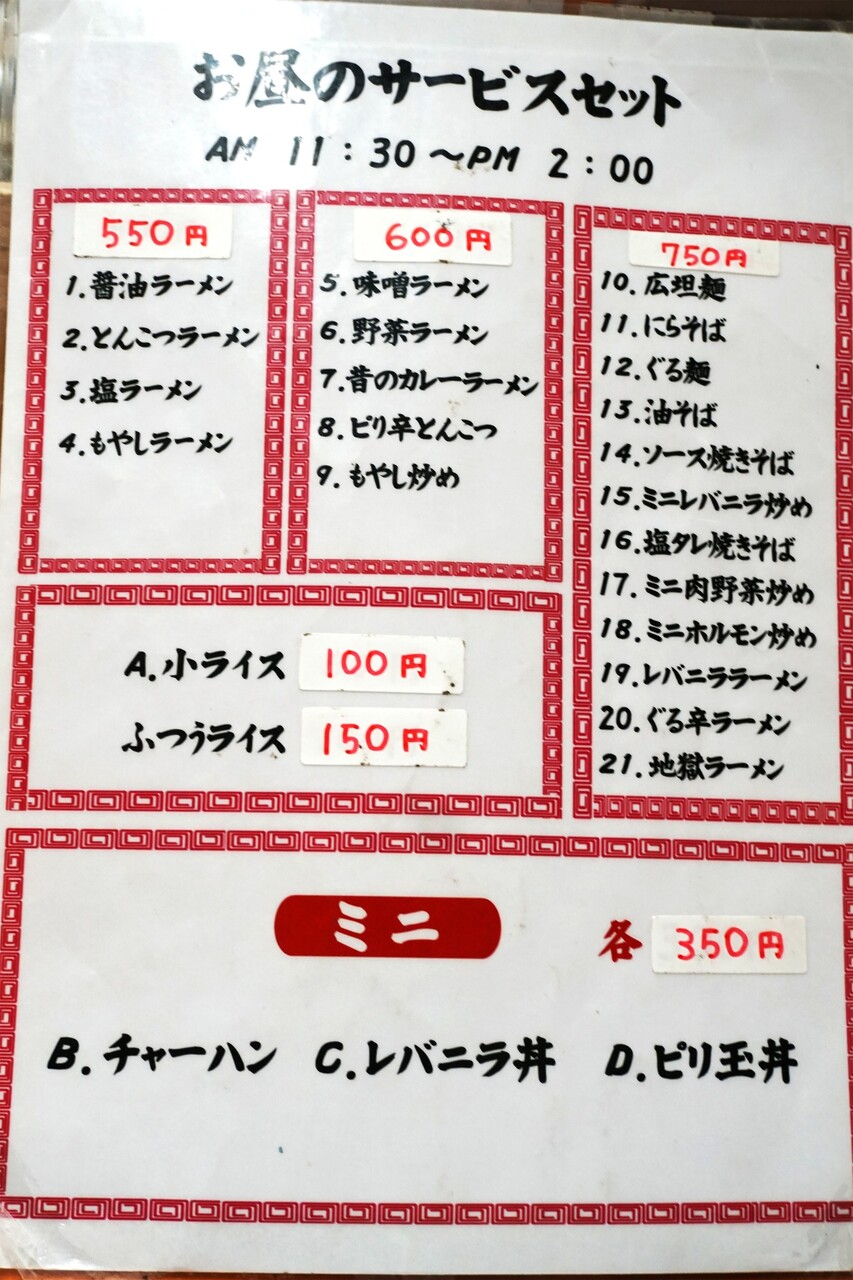 お昼のサービスセット
AM 11:30～PM 2:00
550円
1.醤油ラーメン
2.とんこつラーメン
3.塩ラーメン
4.もやしラーメン
600円
5.味噌ラーメン
6.野菜ラーメン
7.昔のカレーラーメン
8.ピリ辛とんこつ
9.もやし炒め
750円
10.広坦麺
11.にらそば
12.ぐる麺
13.油そば
14.ソース焼きそば
15.ミニレバニラ炒め
16.塩タレ焼きそば
17.ミニ肉野菜炒め
18.ミニホルモン炒め
19.レバニララーメン
20.ぐる辛ラーメン
21.地獄ラーメン
A.小ライス 100円
ふつうライス 150円
ミニ 各 350円
B.チャーハン C.レバニラ丼 D.ピリ玉丼